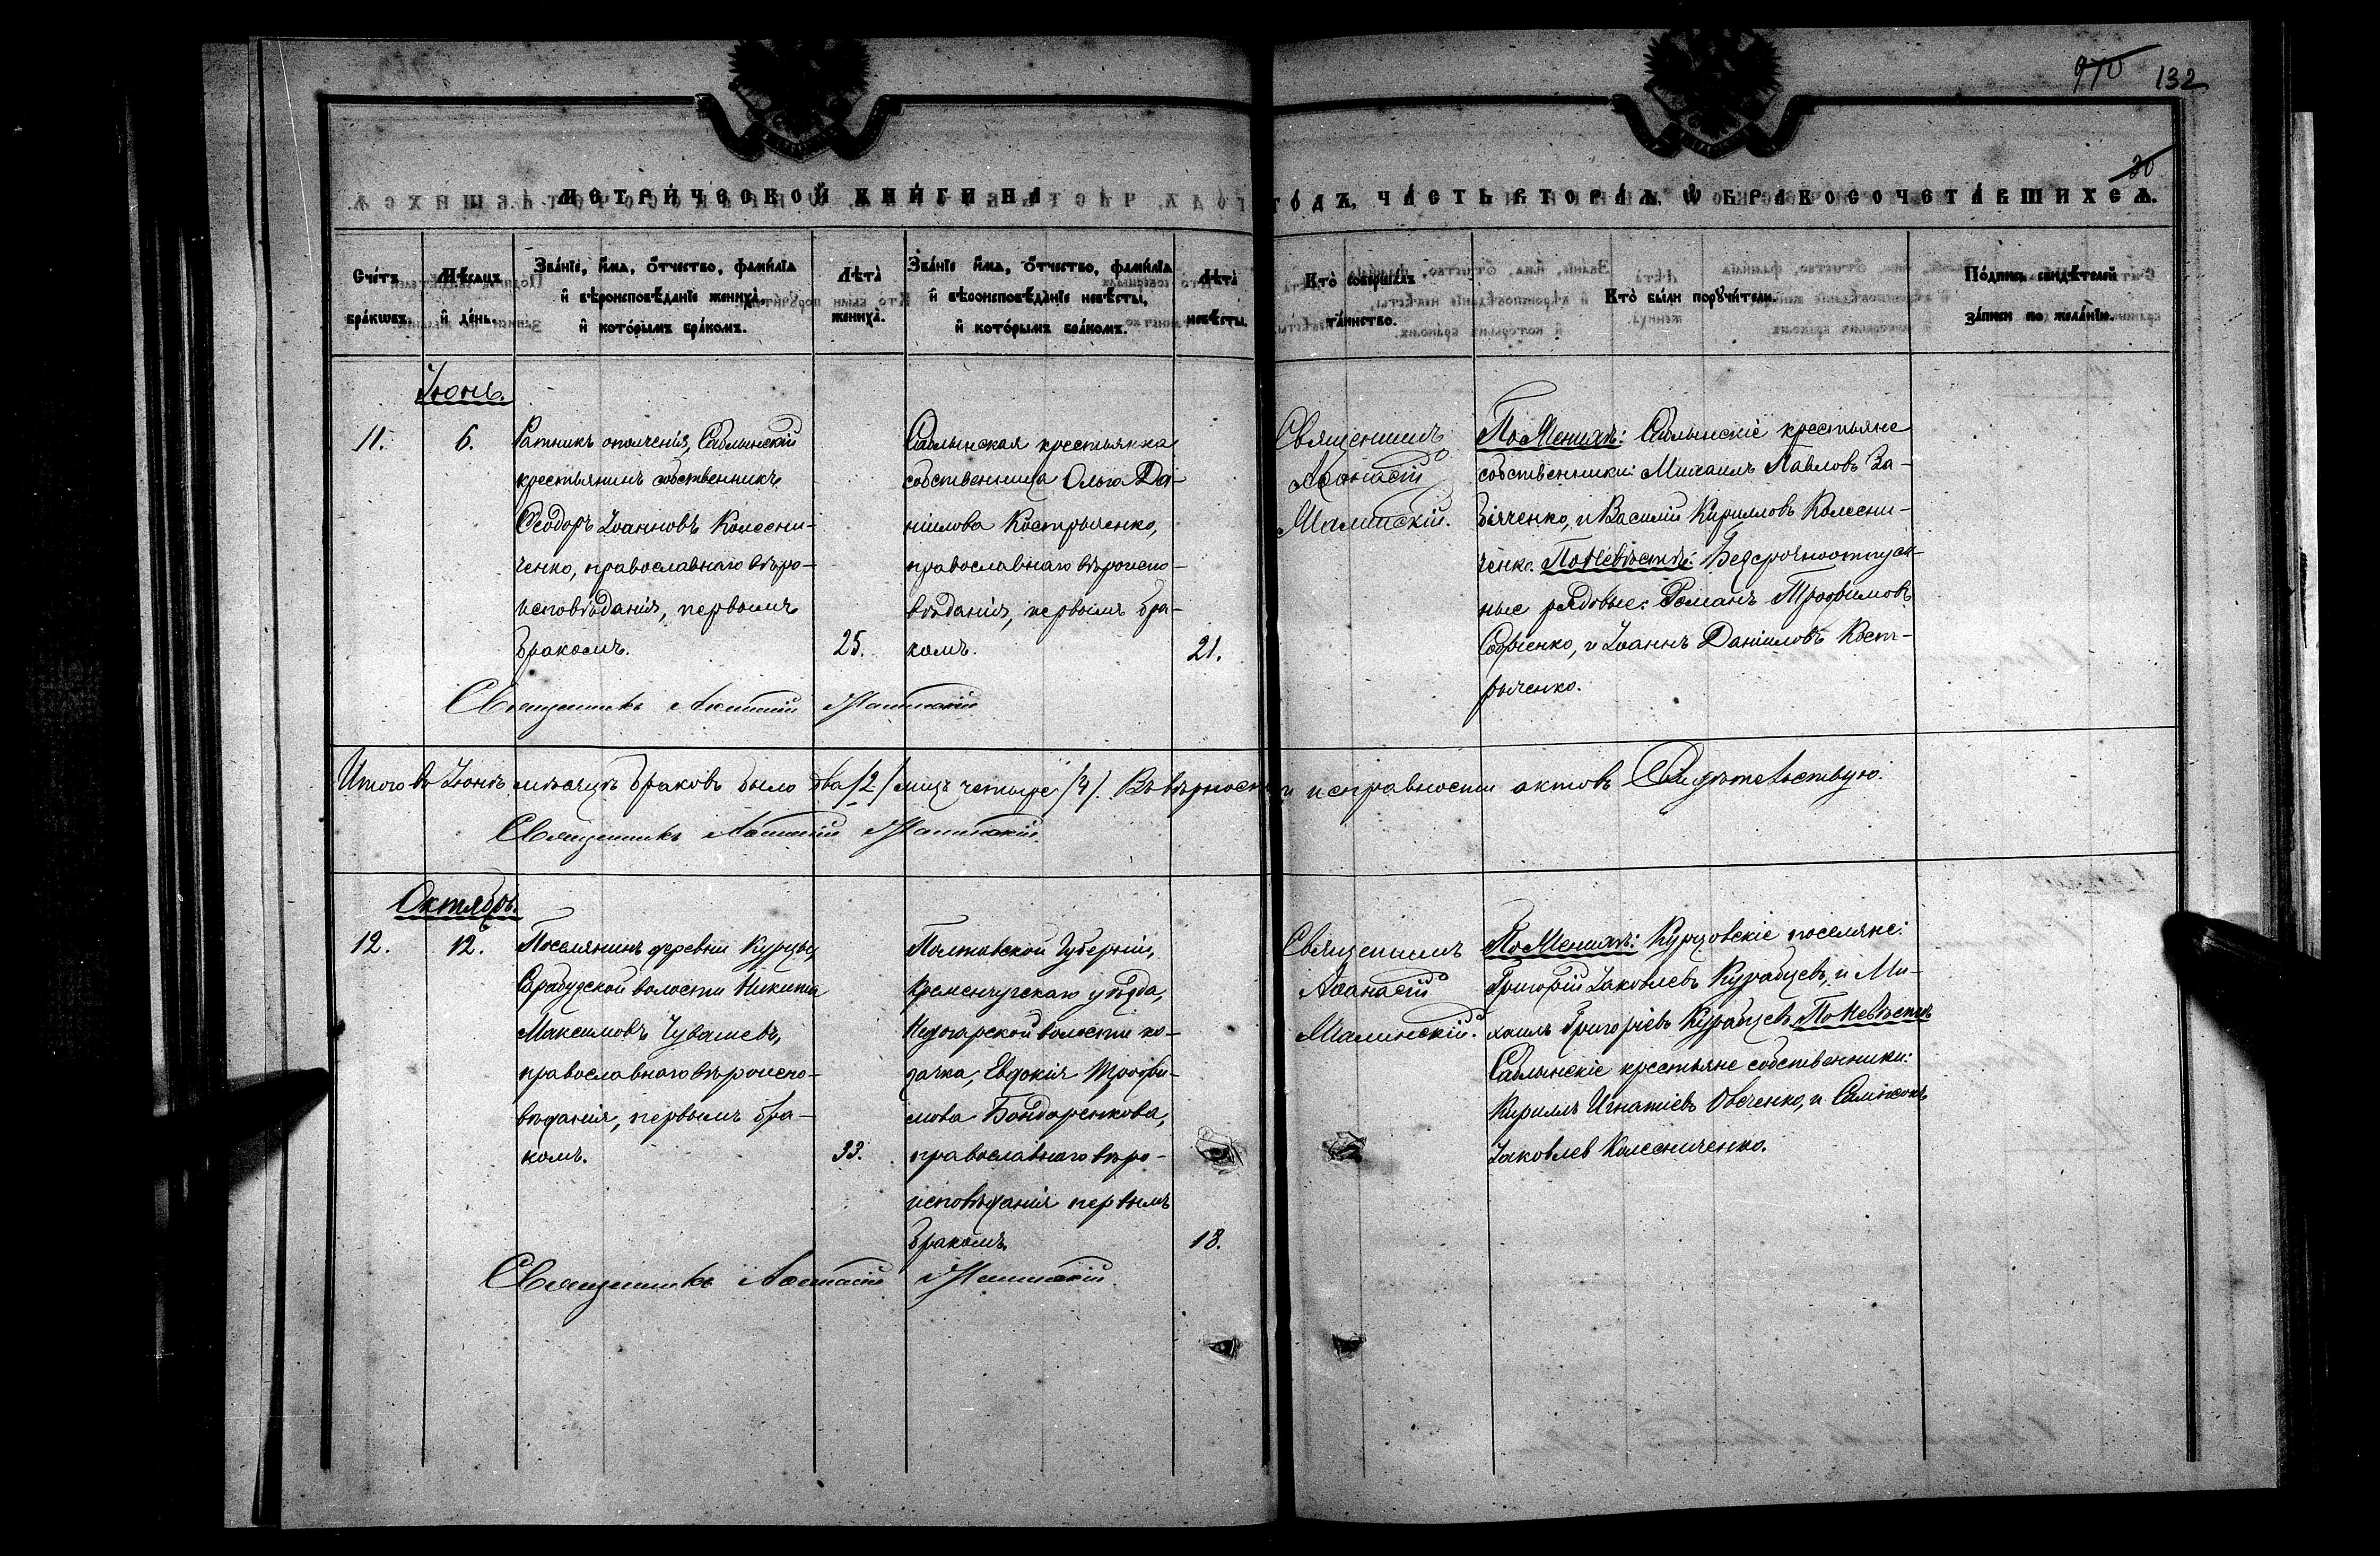 970 132
30
МЕТРИЧЕСКОЙ КНИГИ НА ГОДЪ, ЧАСТЬ ВТОРАѦ, Ѡ БРАКОСОЧЕТАВШИХСѦ.
Счетъ браковъ.
Мѣсяцъ и день.
Званіе, имя, отчество, фамилія
и вѣроисповѣданіе жениха,
и которымъ бракомъ.
Лѣта
жениха.
Званіе имя, отчество, фамилія
и вѣроисповѣданіе невѣсты,
и которымъ бракомъ.
Лѣта
невѣсты.
Кто совершалъ
таинство.
Кто были поручители.
Подпись свидѣтелей
записи по желанію.
Іюнь.
11.
6.
Ратникъ ополченія, Саблынскій
крестьянинъ собственникъ
Ѳеодоръ Іоанновъ Колесни-
ченко, православнаго вѣро-
исповѣданія, первымъ
бракомъ.
25.
Саблынская крестьянка
собственница Ольга Да-
ніилова Кострыченко,
православнаго вѣроиспо-
вѣданія, первымъ бра-
комъ.
21.
Священникъ
Аѳанасій
Малинскій.
По Женихѣ: Саблынскіе крестьяне
собственники: Михаилъ Павловъ За-
бiяченко, и Василій Кирилловъ Колесни-
ченко. По Невѣстѣ: Безсрочноотпуск-
ные рядовые: Романъ Трофимовъ
Софіенко, и Іоаннъ Даніиловъ Кост-
рыченко.
Священникъ Аѳанасій Малинскій
Итого въ Іюнѣ мѣсяцѣ браковъ было два /2/ лицъ четыре /4/. Въ вѣрности и исправности актовъ Свидѣтельствую.
Священникъ Аѳанасій Малинскій.
Октябрь.
12.
12.
Поселянинъ деревни Курцы,
Сарабузской волости Никита
Максимовъ Чувашевъ,
православнаго вѣроиспо-
вѣданія, первымъ бра-
комъ.
33.
Полтавской Губерніи,
Кременчугскаго уѣзда,
Недогарской волости ко-
зачка, Евдокія Трофи-
мова Бондаренкова,
православнаго вѣро-
исповѣданія первымъ
бракомъ.
18.
Священникъ
Аѳанасій
Малинскій.
По Женихѣ: Курцовскіе поселяне:
Григорій Іаковлевъ Курабцевъ, и Ми-
хаилъ Григоріевъ Курабцевъ По Невѣстѣ
Саблынскіе крестьяне собственники:
Кириллъ Игнатіевъ Овеченко, и Самсонъ
Іаковлев Колесниченко.
Священникъ Аѳанасій Малинскій.